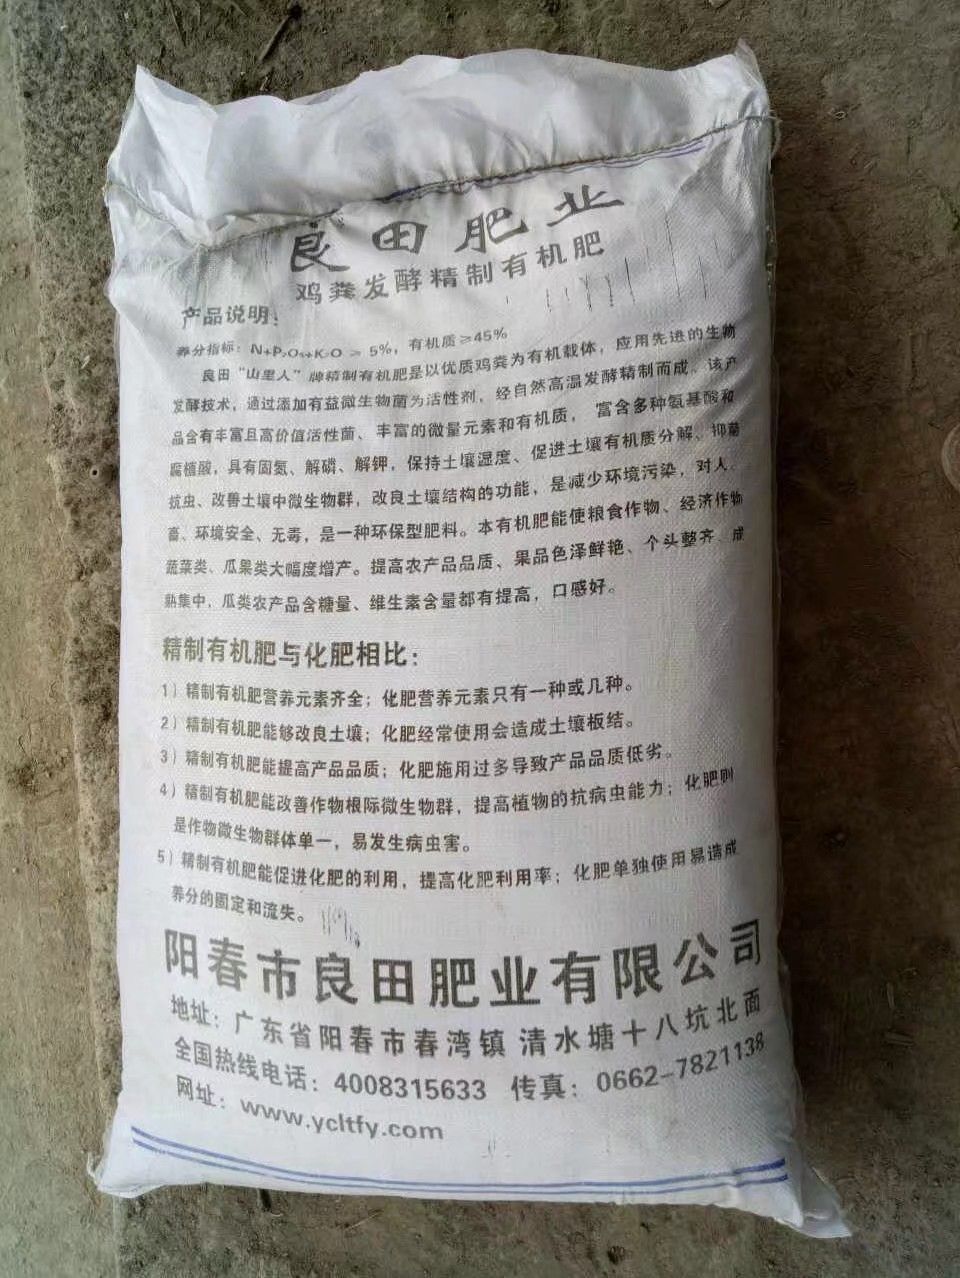 良田肥业
鸡粪发酵精制有机肥
产品说明：
养分指标：N+P₂O₅+K₂O ≥ 5%，有机质≥45%
良田“山里人”牌精制有机肥是以优质鸡粪为有机载体，应用先进的生物
发酵技术，通过添加有益微生物菌为活性剂，经自然高温发酵精制而成。该产
品含有丰富且高价值活性菌、丰富的微量元素和有机质，富含多种氨基酸和
腐植酸，具有固氮、解磷、解钾，保持土壤湿度、促进土壤有机质分解、抑菌
抗虫、改善土壤中微生物群，改良土壤结构的功能，是减少环境污染，对人、
畜、环境安全、无毒，是一种环保型肥料。本有机肥能使粮食作物、经济作物
蔬菜类、瓜果类大幅度增产。提高农产品品质、果品色泽鲜艳、个头整齐、成
熟集中，瓜类农产品含糖量、维生素含量都有提高，口感好。
精制有机肥与化肥相比：
1）精制有机肥营养元素齐全；化肥营养元素只有一种或几种。
2）精制有机肥能够改良土壤；化肥经常使用会造成土壤板结。
3）精制有机肥能提高产品品质；化肥施用过多导致产品品质低劣。
4）精制有机肥能改善作物根际微生物群，提高植物的抗病虫能力；化肥则
是作物微生物群体单一，易发生病虫害。
5）精制有机肥能促进化肥的利用，提高化肥利用率；化肥单独使用易造成
养分的固定和流失。
阳春市良田肥业有限公司
地址：广东省阳春市春湾镇 清水塘十八坑北面
全国热线电话：4008315633 传真：0662-7821138
网址：www.ycltfy.com